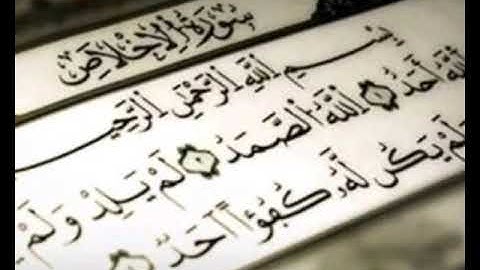 سُورَةُ الإِخْلَاصِ
بِسْمِ اللَّهِ الرَّحْمَٰنِ الرَّحِيمِ
اللَّهُ أَحَدٌ ۝ اللَّهُ الصَّمَدُ ۝ لَمْ يَلِدْ وَلَمْ
وَلَمْ يَكُن لَّهُ كُفُوًا أَحَدٌ